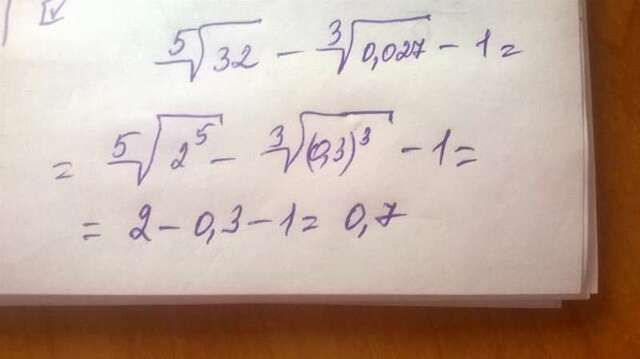 ⁵√32 - ³√0,027 - 1 =
= ⁵√2⁵ - ³√(0,3)³ - 1 =
= 2 - 0,3 - 1 = 0,7